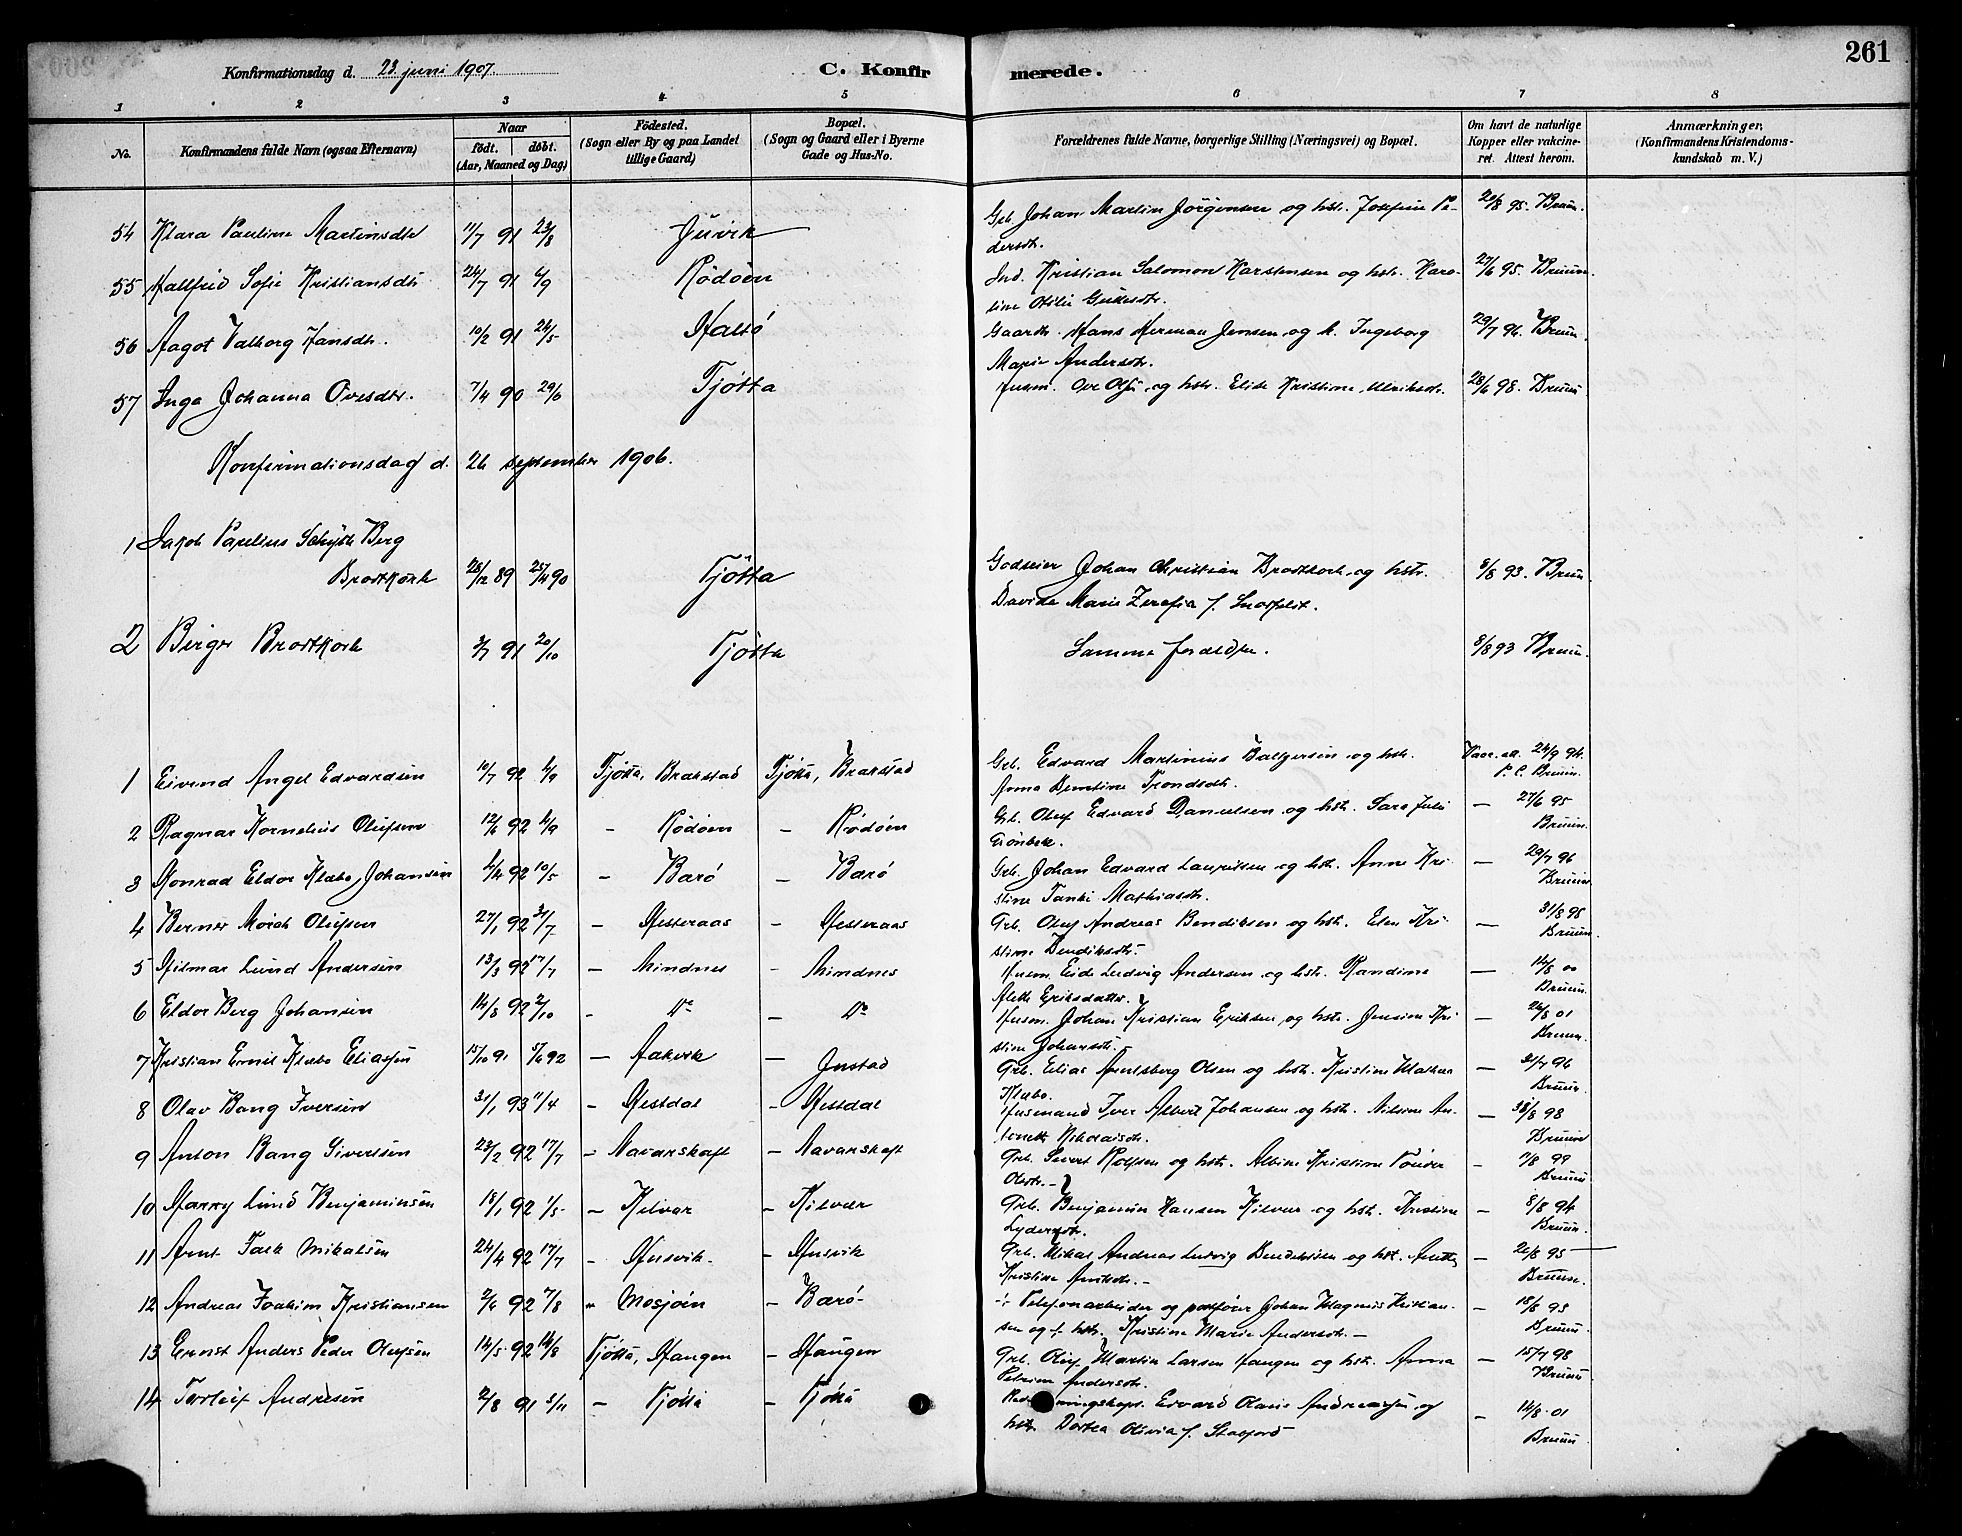 261
Konfirmationsdag d. 23. juni 1907.
C. Konfirmerede.
1 2 3 4 5 6 7 8
No.
Konfirmandens fulde Navn (ogsaa Efternavn)
Naar
født. døbt.
(Aar, Maaned og Dag)
Fødested.
(Sogn eller By og paa Landet
tillige Gaard)
Bopæl.
(Sogn og Gaard eller i Byerne
Gade og Hus-No.
Forældrenes fulde Navne, borgerlige Stilling (Næringsvei) og Bopæl.
Om havt de naturlige
Kopper eller vakcine-
ret. Attest herom.
Anmærkninger,
(Konfirmandens Kristendoms-
kundskab m. V.)
54 Klara Pauline Martinsdtr 11/7 91 23/8 Juvik Grb. Johan Martin Jörgensen og hstr. Josefine Pe- 21/8 95. Bruun.
dersdtr.
55 Hallfrid Sofie Kristiansdtr 24/7 91 6/9 Rödöen Ind. Kristian Salomon Karstensen og hstr. Karo- 27/6 95. Bruun.
line Otilie
56 Aagot Valborg Hansdtr. 10/2 91 24/5 Haltö Gaardb. Hans Herman Jensen og h. Ingeborg 29/7 96. Bruun.
Marie Andersdtr.
57 Inga Johanna Ovesdtr. 7/4 90 29/6 Tjötta Husm. Ove Olsen og hstr. Elise Kristine Ulriksdtr. 28/6 98. Bruun
Konfirmationsdag d. 26 september 1906.
1 Jakob Paulinus Schytte Berg
Brodtkorb 28/12 89 25/4 90 Tjötta Godseier Johan Christian Brodtkorb og hstr. 8/8 93. Bruun
Davida Marie Zerafia f.
2 Birger Brodtkorb 3/7 91 20/10 Tjötta Samme forældre. 8/8 93 Bruun.
1 Eivind Angel Edvardsen 10/7 92 4/9 Tjötta, Brakstad Tjötta, Brakstad Grb. Edvard Martinius Balzersen og hstr. Vacc. at. 24/9 94.
Anna Berntine Trondsdtr. P. C. Bruun.
2 Ragnar Kornelius Olufsen 12/6 92 4/9 - Rödöen - Rödöen Grb. Oluf Edvard Danielsen og hstr. Sara Juli — 27/6 95
Grönbek. Bruun.
3 Konrad Eldor Klæbo Johansen 4/4 92 10/5 - Barö - Barö Grb. Johan Edvard Lauritsen og hstr. Anne Kri- — 29/7 96
stine Tanke Mathiasdtr. Bruun
4 Berner Mörch Olufsen 27/1 92 31/7 - Hesteraas - Hesteraas Grb. Oluf Andreas Bendiksen og hstr. Elen Kri- — 31/8 98
stine Bendiksdtr. Bruun.
5 Hilmar Lund Andersen 13/3 92 17/7 - Mindnes - Mindnes Husm. Eide Ludvig Andersen og hstr. Randine — 14/8 00
Aleth Eriksdatter. Bruun.
6 Eldor Berg Johansen 14/8 92 2/10 - Do - Do Husm. Johan Kristian Eriksen og hstr. Jensine Kri- — 26/8 01
stine Johansdtr. Bruun
7 Kristian Ernil Klæbo Eliassen 15/10 91 5/6 92 - Aakvik — Jnstad Grb. Elias Arntsberg Olsen og hstr. Kristine Mathea — 31/7 96
Klæbo. Bruun
8 Olav Bang Iversen 31/1 93 11/4 - Hestdal - Hestdal Husmand Iver Albert Johansen og hstr. Nilsine An- — 30/8 98
tonette Nikolaisdtr. Bruun
9 Anton Bang Sivertsen 23/2 92 17/7 - Navarskaft - Navarskaft Grb. Sivert Rolfsen og hstr. Albine Kristine Tonder — 7/8 99
Olsdtr. Bruun
10 Harry Lund Benjaminsen 18/1 92 1/5 - Kilvær - Kilvær Grb. Benjamin Hansen Kilvær og hstr. Kristine — 8/8 94
Lydersdtr. Bruun.
11 Arnt Falk Mikalsen 24/4 92 17/7 - Husvik - Husvik Grb. Mikal Andreas Ludvig Bendiktsen og hstr. Anette — 26/8 95
Kristine Arntsdtr. Bruun.
12 Andreas Joakim Kristiansen 2/6 92 7/8 " Mosjöen - Barö Telefonarbeider og postförer Johan Magnus Kristian- — 18/8 93
sen og f. hstr. Kristine Marie Andersdtr. Bruun
13 Ernst Anders Peder Olufsen 14/5 92 14/8 Tjötta, Haugen - Haugen Grb. Oluf Martin Larsen Haugen og hstr. Anna — 15/7 98
Petrine Andersdtr. Bruun
14 Torleif Andresen 2/8 91 3/11 - Tjötta - Tjötta Edvard Olaus Andreassen og — 14/8 01
hstr. Dortea Olivia f. Stabford Bruun